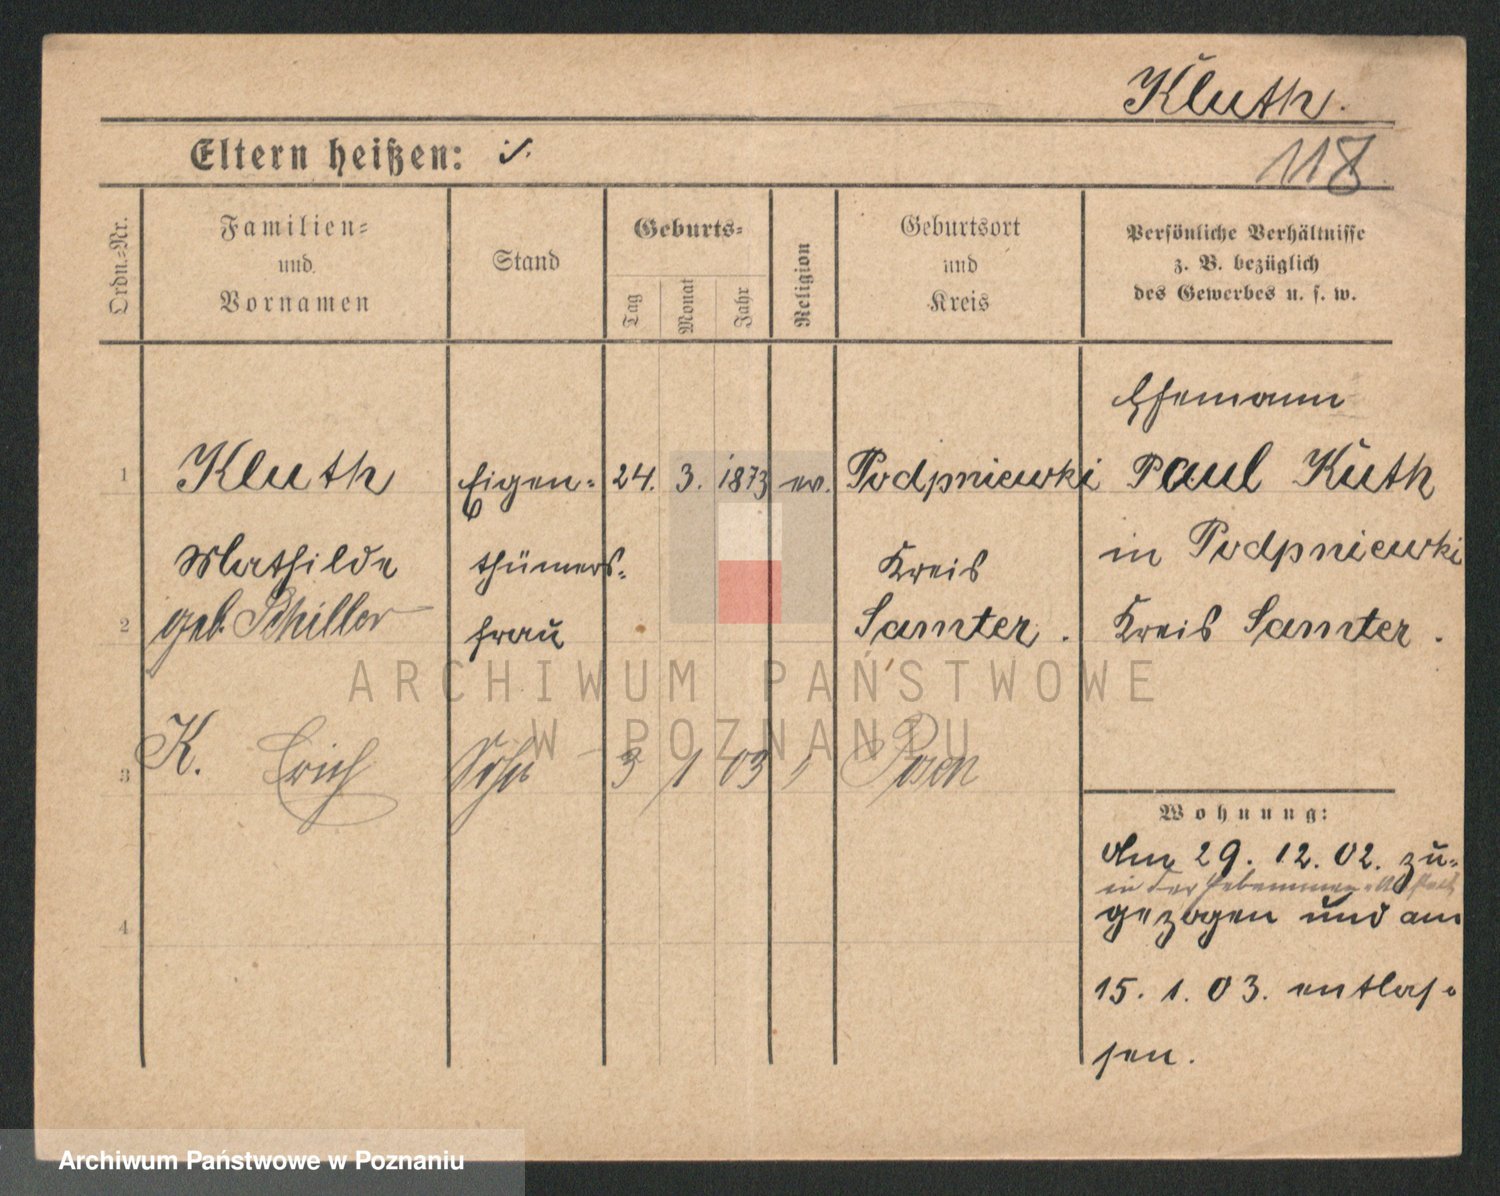 Kluth.
Eltern heißen: ./.
118
Ordn.=Nr.
Familien=
und
Vornamen
Stand
Geburts=
Tag
Monat
Jahr
Religion
Geburtsort
und
Kreis
Persönliche Verhältnisse
z. B. bezüglich
des Gewerbes u. s. w.
Ehemann
1 Kluth Eigen= 24. 3. 1873 ev. Podpniewki Paul Kluth
Mathilde thümers= Kreis in Podpniewki
2 geb. Schiller frau Samter. Kreis Samter.
ARCHIWUM PAŃSTWOWE
W POZNANIU
3 K. Erich Sohn 3 1 03 " Posen
Wohnung:
Am 29. 12. 02. zu=
in der Hebammen=
4 gezogen und am
15. 1. 03. entlas=
sen.
Archiwum Państwowe w Poznaniu